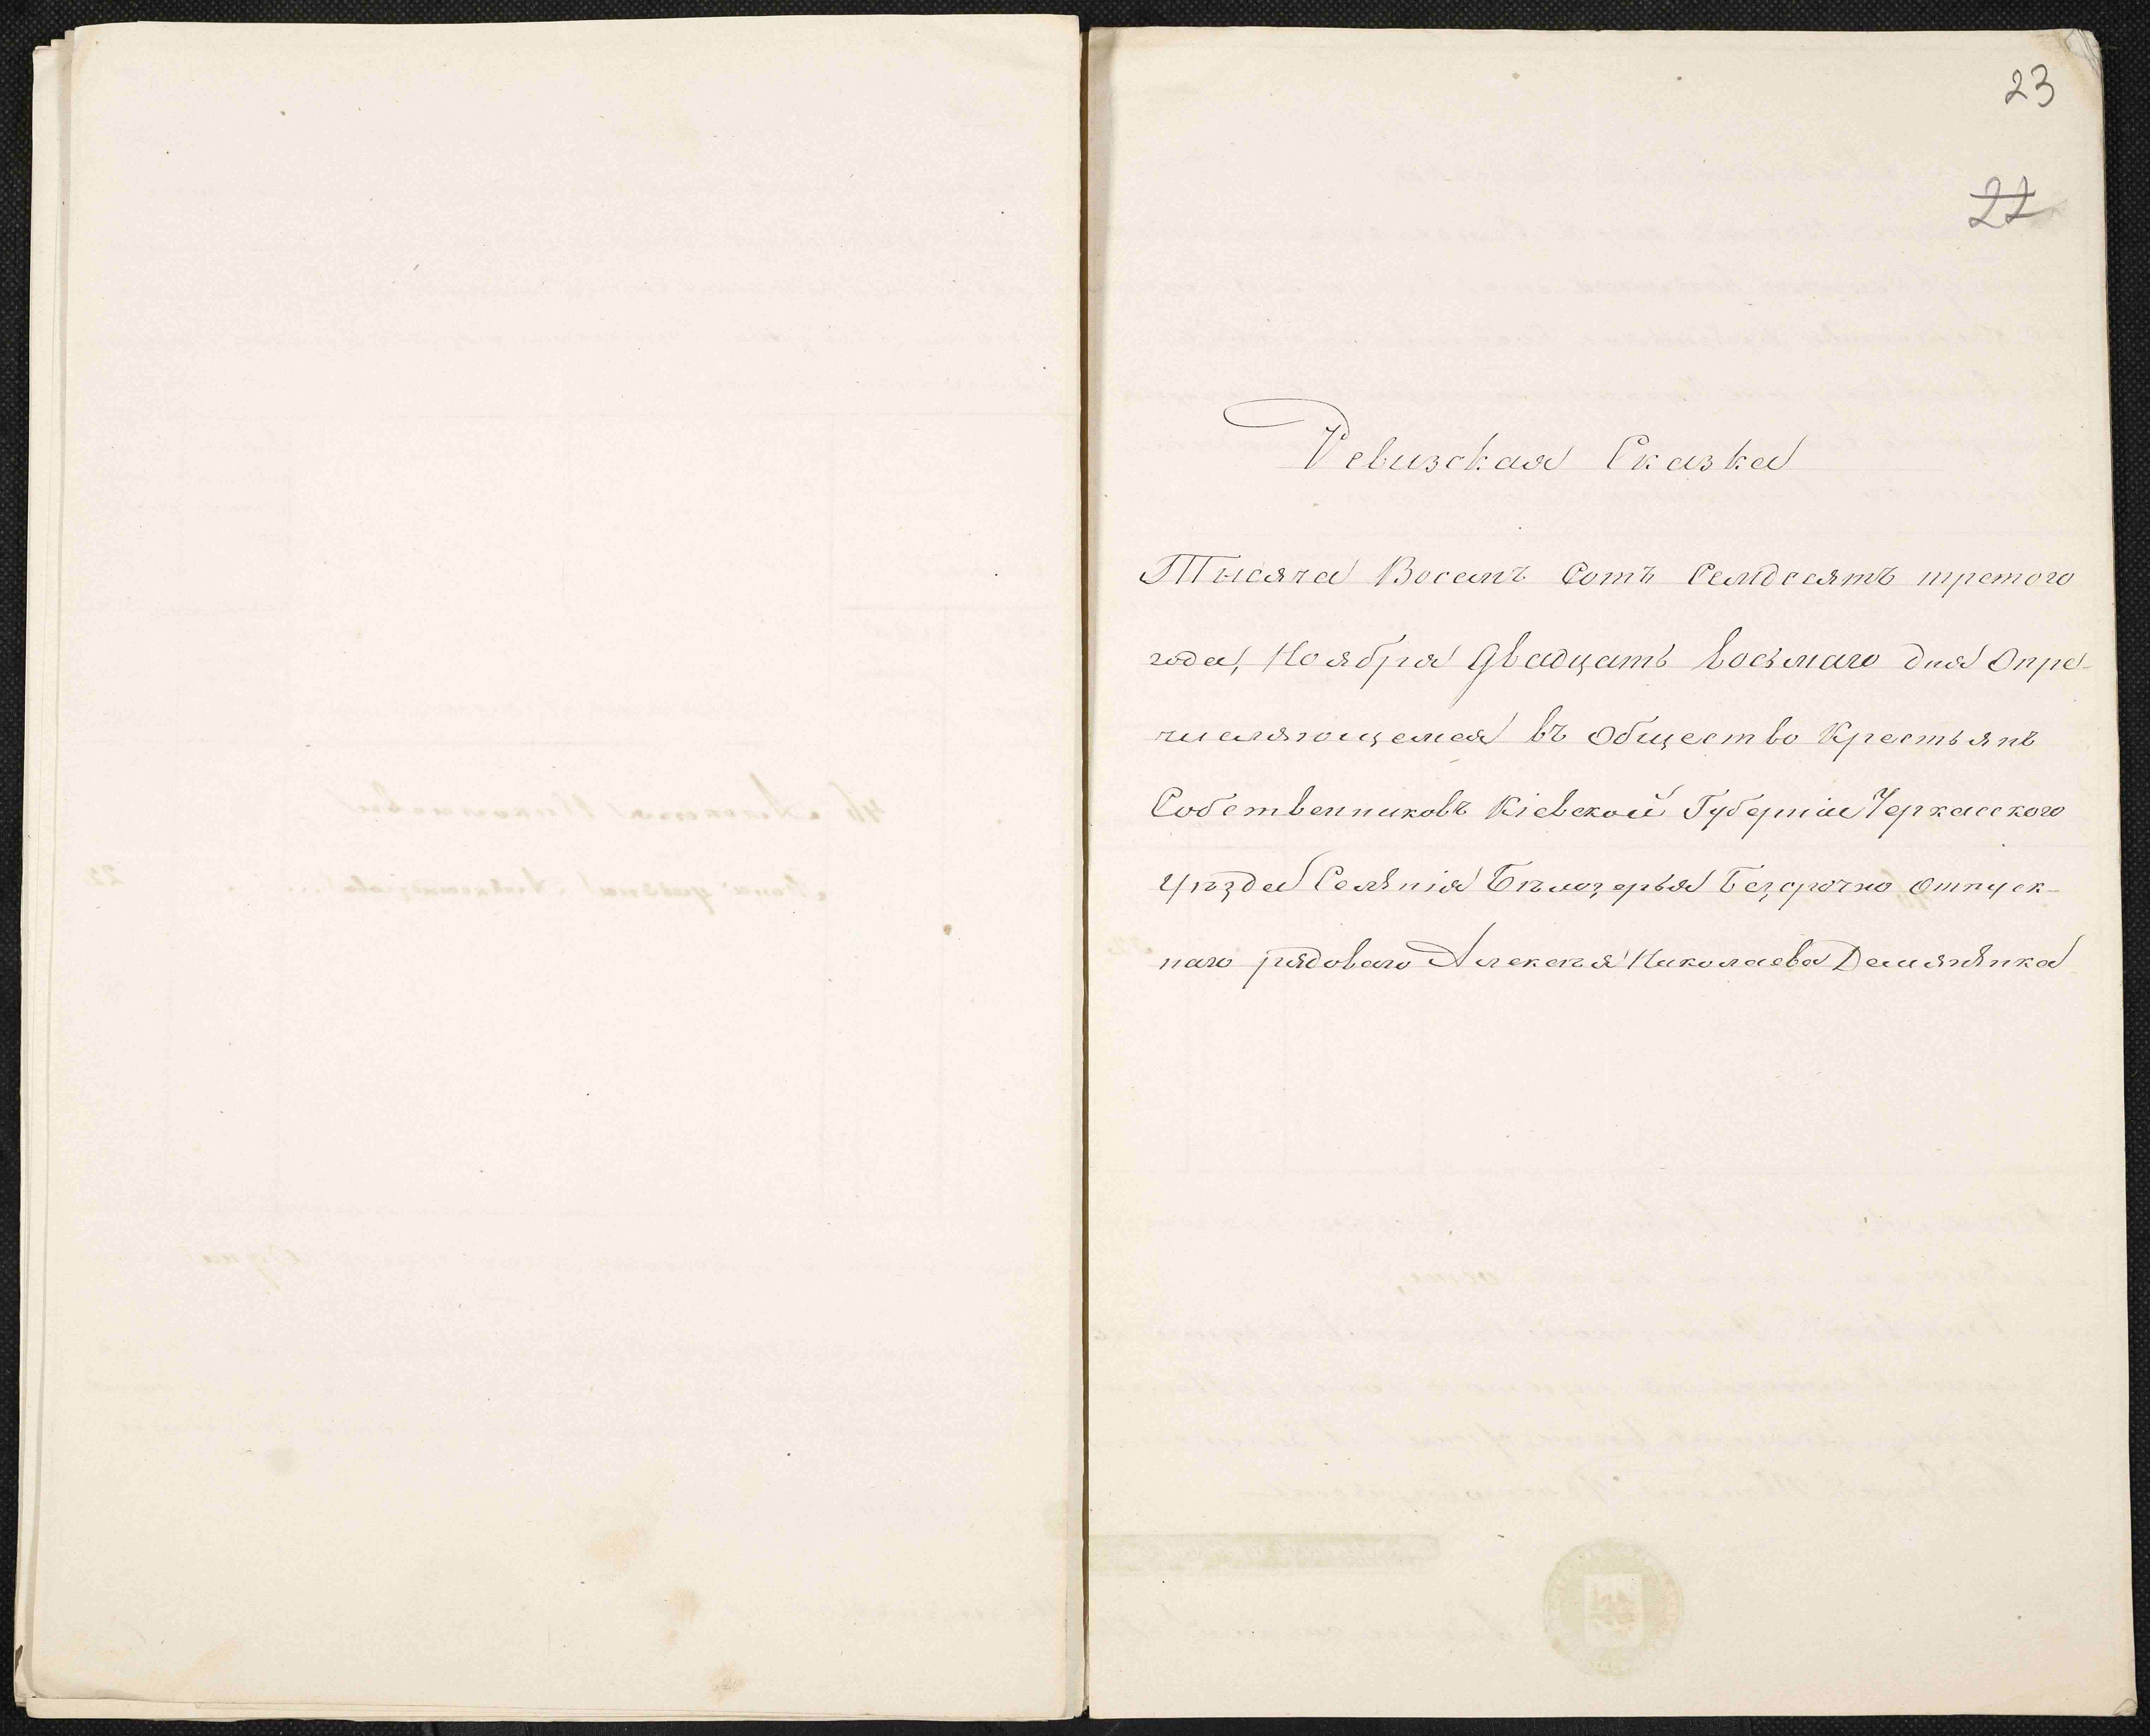 23
22
Ревизская Сказка
Тысяча Восемъ Сотъ Семдесятъ третого
года, Ноября Двадцать восьмаго дня Опре-
числяющемся въ Общество Крестьянъ
Собственниковъ Кіевской Губерніи Черкасского
уѣзда Селѣнія Бѣлозерья Безсрочно отпуск-
наго рядоваго Алексѣя Николаева Демянѣнка